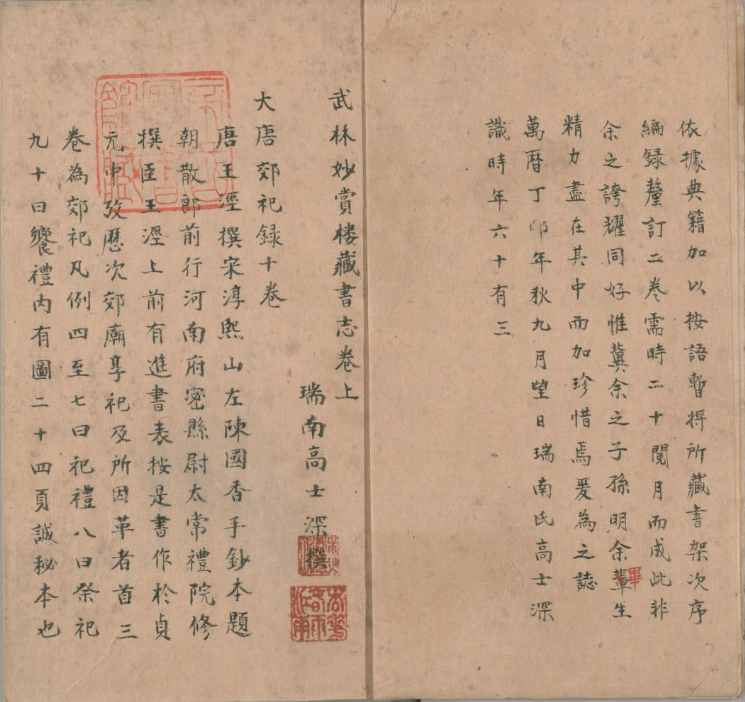 依據典籍加以按語暫將所藏書架次序
編録釐訂二卷需時二十閱月而成此非
余之誇耀同好惟冀余之子孫明余輩生
畢
精力盡在其中而加珍惜焉爰為之誌
萬曆丁卯年秋九月望日瑞南氏高士深
識時年六十有三
武林妙賞楼藏書志卷上
瑞南高士深撰
大唐郊祀録十卷
唐王涇撰宋淳熙山左陳國香手鈔本題
朝散郎前行河南府密縣尉太常禮院修
撰臣王涇上前有進書表按是書作於貞
元中攷歷次郊廟享祀及所因革者首三
卷為郊祀凡例四至七曰祀禮八曰祭祀
九十曰饗禮内有圖二十四頁誠秘本也